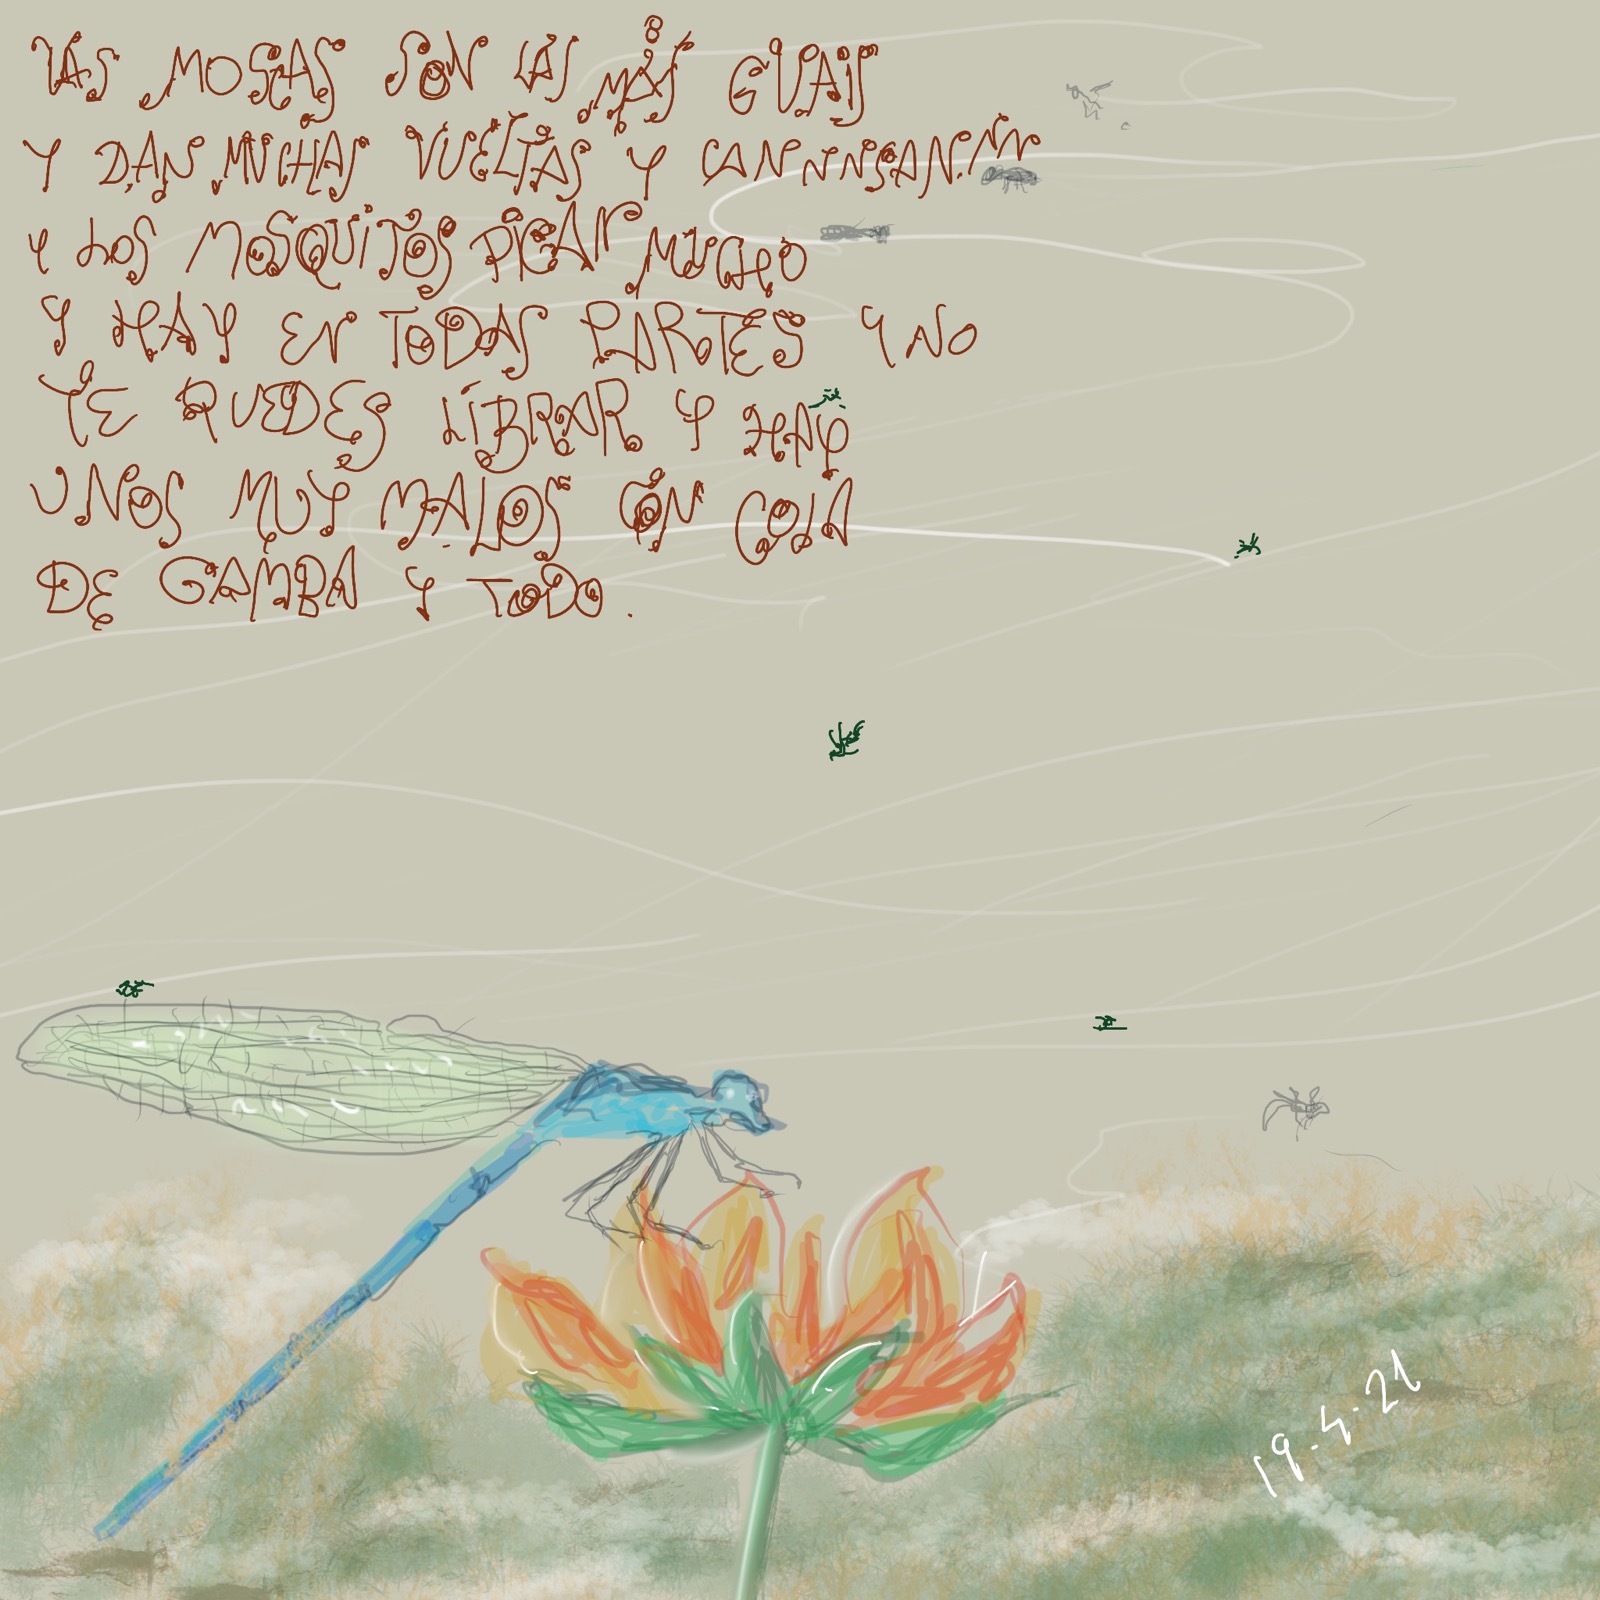 LAS MOSCAS SON LAS MÁS GUAIS
Y DAN MUCHAS VUELTAS Y
Y LOS MOSQUITOS PICAN MUCHO
Y HAY EN TODAS PARTES Y NO
TE PUEDES LIBRAR Y HAY
UNOS MUY MALOS CON COLA
DE GAMBA Y TODO.
19-4-21